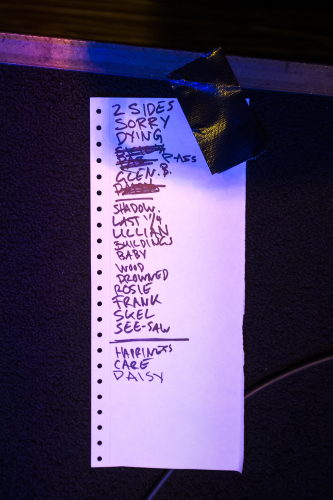 2 SIDES
SORRY
DYING
PASS
GLEN. B.
SHADOW.
LAST 1/4
LILLIAN
BUILDINGS
BABY
WOOD
DROWNED
ROSIE
FRANK
SKEL
SEE-SAW
HAPPINESS
CARE
DAISY